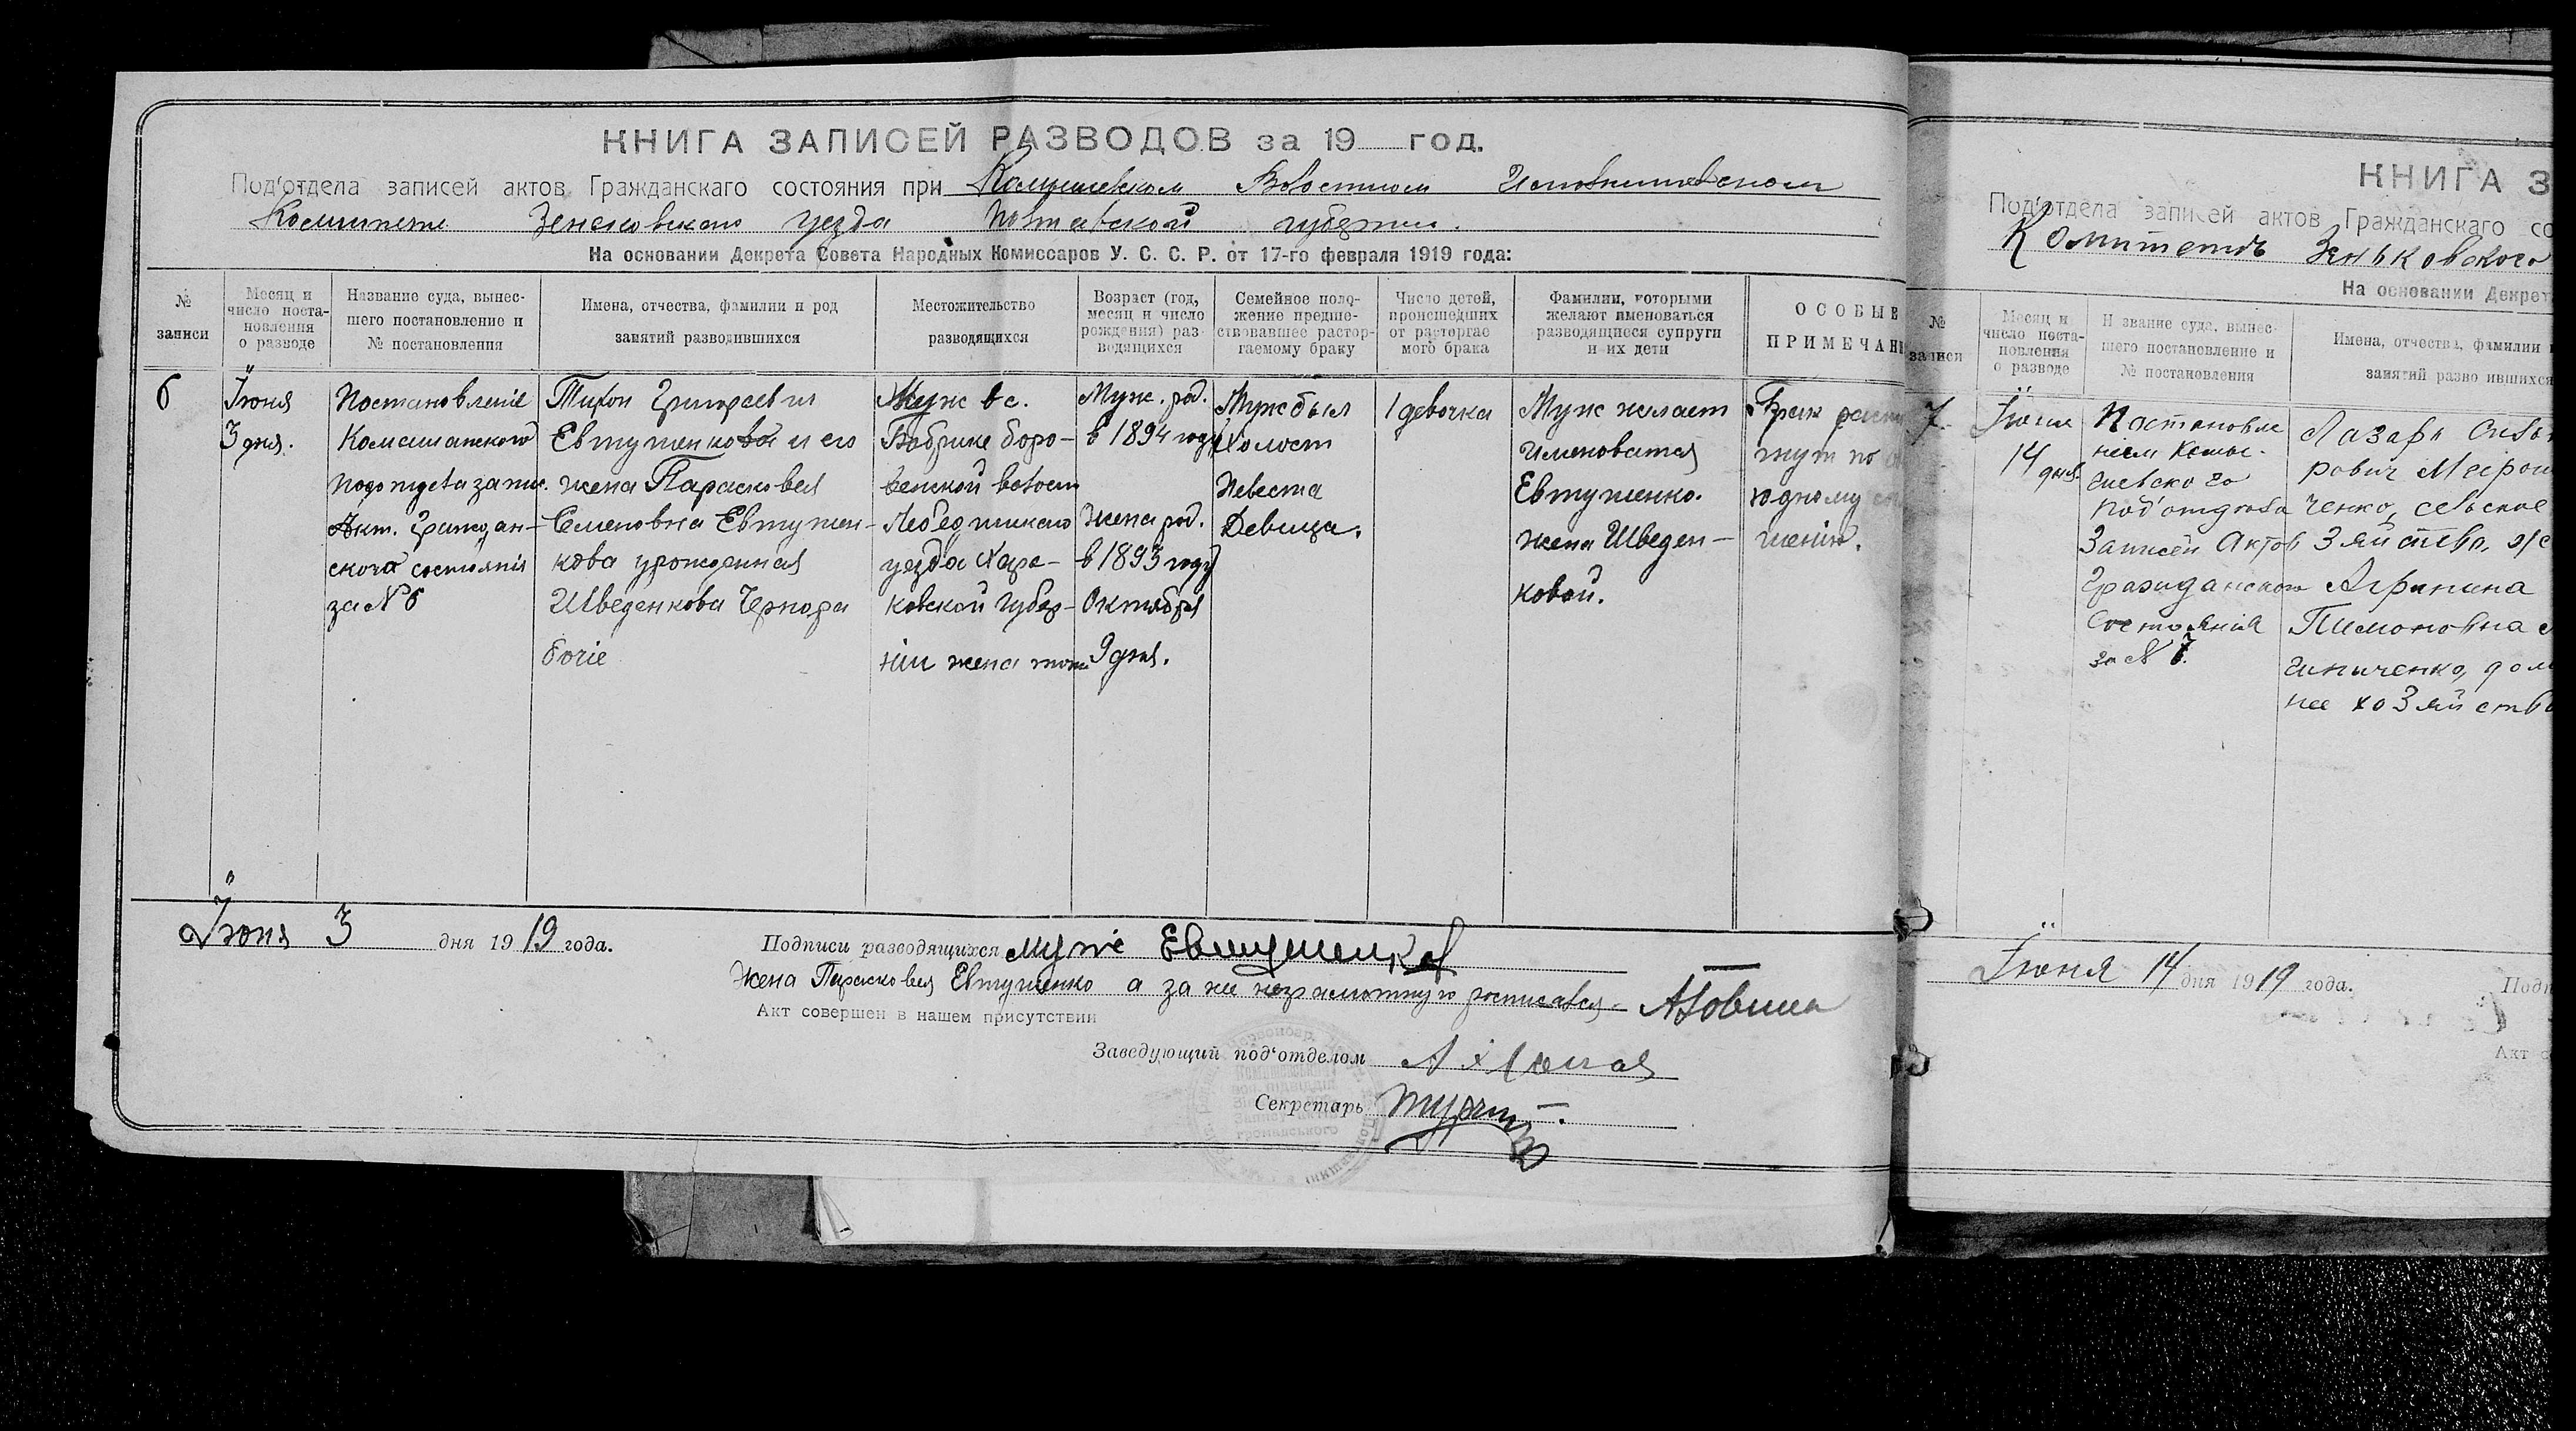 КНИГА ЗАПИСЕЙ РАЗВОДОВ за 19 год.
Под'отдела записей актов Гражданскаго состояния при Комышевском Волостном Исполнительском
Комитете Зеньковскаго уезда Полтавской губернии.
На основании Декрета Совета Народных Комиссаров У. С. С. Р. от 17-го февраля 1919 года:
№
записи
Месяц и
число поста-
новления
о разводе
Название суда, вынес-
шего постановление и
№ постановления
Имена, отчества, фамилии и род
занятий разводившихся
Местожительство
разводящихся
Возраст (год,
месяц и число
рождения) раз-
водящихся
Семейное поло-
жение предше-
ствовавшее растор-
гаемому браку
Число детей,
происшедших
от расторгае
мого брака
Фамилии, которыми
желают именоваться
разводящиеся супруги
и их дети
ОСОБЫЕ
ПРИМЕЧАН
6
Іюня
3 дня.
Постановленіе
Комышанского
подотдела запис.
Акт. Граждан-
скога состоянія
за № 6
Тихон Григорьевич
Евтушенкова и его
жена Парасковея
Семеновна Евтушен-
кова урожденная
Шведенкова Чернора
бочіе
Муж в с.
Бобрике боро-
венской волост
Лебединскаго
уезда Харь-
ковской губер-
ніи жена тоже
Муж. род.
в 1894 году
Жена род.
в 1893 году
Октября
9 дня.
Муж был
Холост
Невеста
Девица.
1 девочка
Муж желает
именоватся
Евтушенко.
жена Шведен-
ковой.
Брак
гнут по
юдному
шению.
Іюня 3 дня 1919 года.
Подписи разводящихся муже Евтушенков
Жена Парасковея Евтушенко а за ню неграмотную росписался
Акт совершен в нашем присутствии
Заведующий под'отделом
Секретарь
КНИГА З
Под'отдела записей актов Гражданскаго со
Комитеть Зеньковского
На основании Декрет
№
записи
Месяц и
число поста-
новления
о разводе
Н звание суда, вынес-
шего постановление и
№ постановления
Имена, отчества, фамилии
занятий разво ившихся
7.
Іюня
14 дня.
Постановле
нием Комы-
шевского
под'отдела
Записей Актов
Гражданского
Состоянія
за № 7.
Лазарь
рович
ченко, сельское
Зяйство,
Агрипина
Пимоновна
ниченко, дом
нее хозяйство
Іюня 14 дня 1919 года.
Подп
Акт с